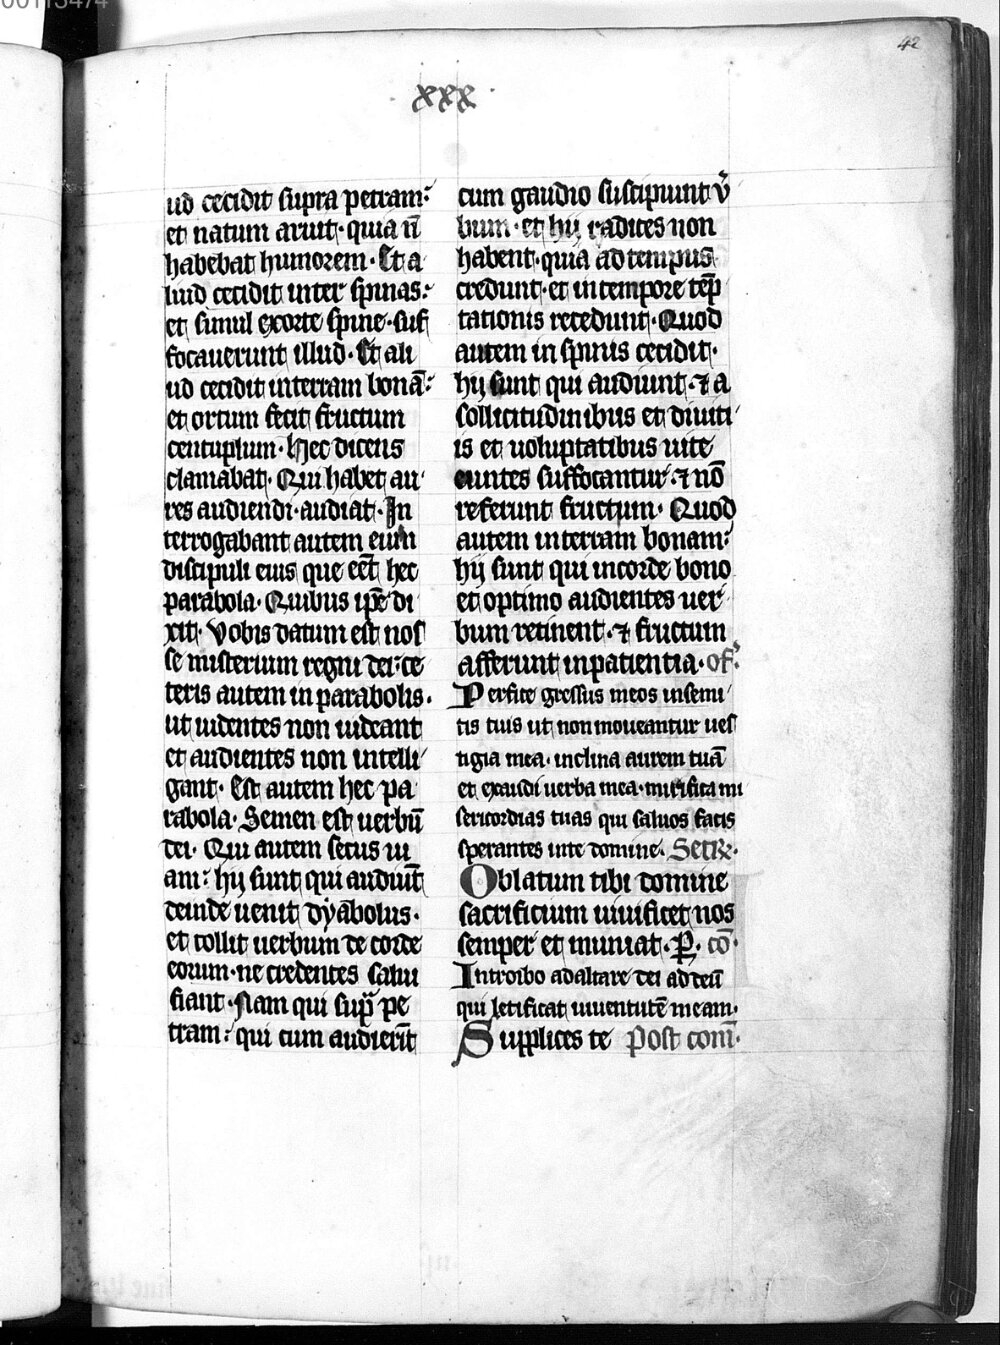 00113474
42
xxx
ud cecidit supra petram:
et natum aruit· quia n̄
habebat humorem· Et a
liud cecidit inter spinas:
et simul exorte spine· suf
focauerunt illud· Et ali
ud cecidit in terram bonā:
et ortum fecit fructum
centuplum· Hec dicens
clamabat· Qui habet au
res audiendi· audiat· In
terrogabant autem eum
discipuli eius que eēt hec
parabola· Quibus ip̄e di
xit· Vobis datum est nos
se misterium regni dei: ce
teris autem in parabolis·
ut uidentes non uideant
et audientes non intelli
gant· Est autem hec pa
rabola· Semen est uerbū
dei· Qui autem secus ui
am: hij sunt qui audiūt
deinde uenit dyabolus·
et tollit uerbum de corde
eorum· ne credentes salui
fiant· Nam qui supͣ pe
tram: qui cum audierīt
cum gaudio suscipiunt v̾
bum· et hij radices non
habent· quia ad tempus
credunt· et in tempore tēp
tationis recedunt· Quod
autem in spinis cecidit·
hij sunt qui audiunt· ⁊ a
sollicitudinibus et diuiti
is et uoluptatibus uite
euntes suffocantur· ⁊ nō
referunt fructum· Quod
autem in terram bonam:
hij sunt qui in corde bono
et optimo audientes uer
bum retinent· ⁊ fructum
afferunt in patientia· of̾·
Perfice gressus meos in semi
tis tuis ut non moueantur ues
tigia mea· inclina aurem tuā
et exaudi uerba mea· mirifica mi
sericordias tuas qui saluos facis
sperantes in te domine· Secr̄·
Oblatum tibi domine
sacrificium uiuificet nos
semper et muniat· P̱· cō·
Introibo ad altare dei ad deū
qui letificat iuuentutē meam·
Supplices te Post com̄·